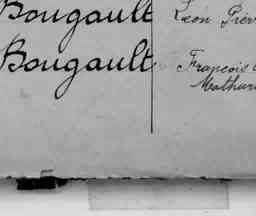 Bougault Léon Pierr
Bougault François
Mathuri